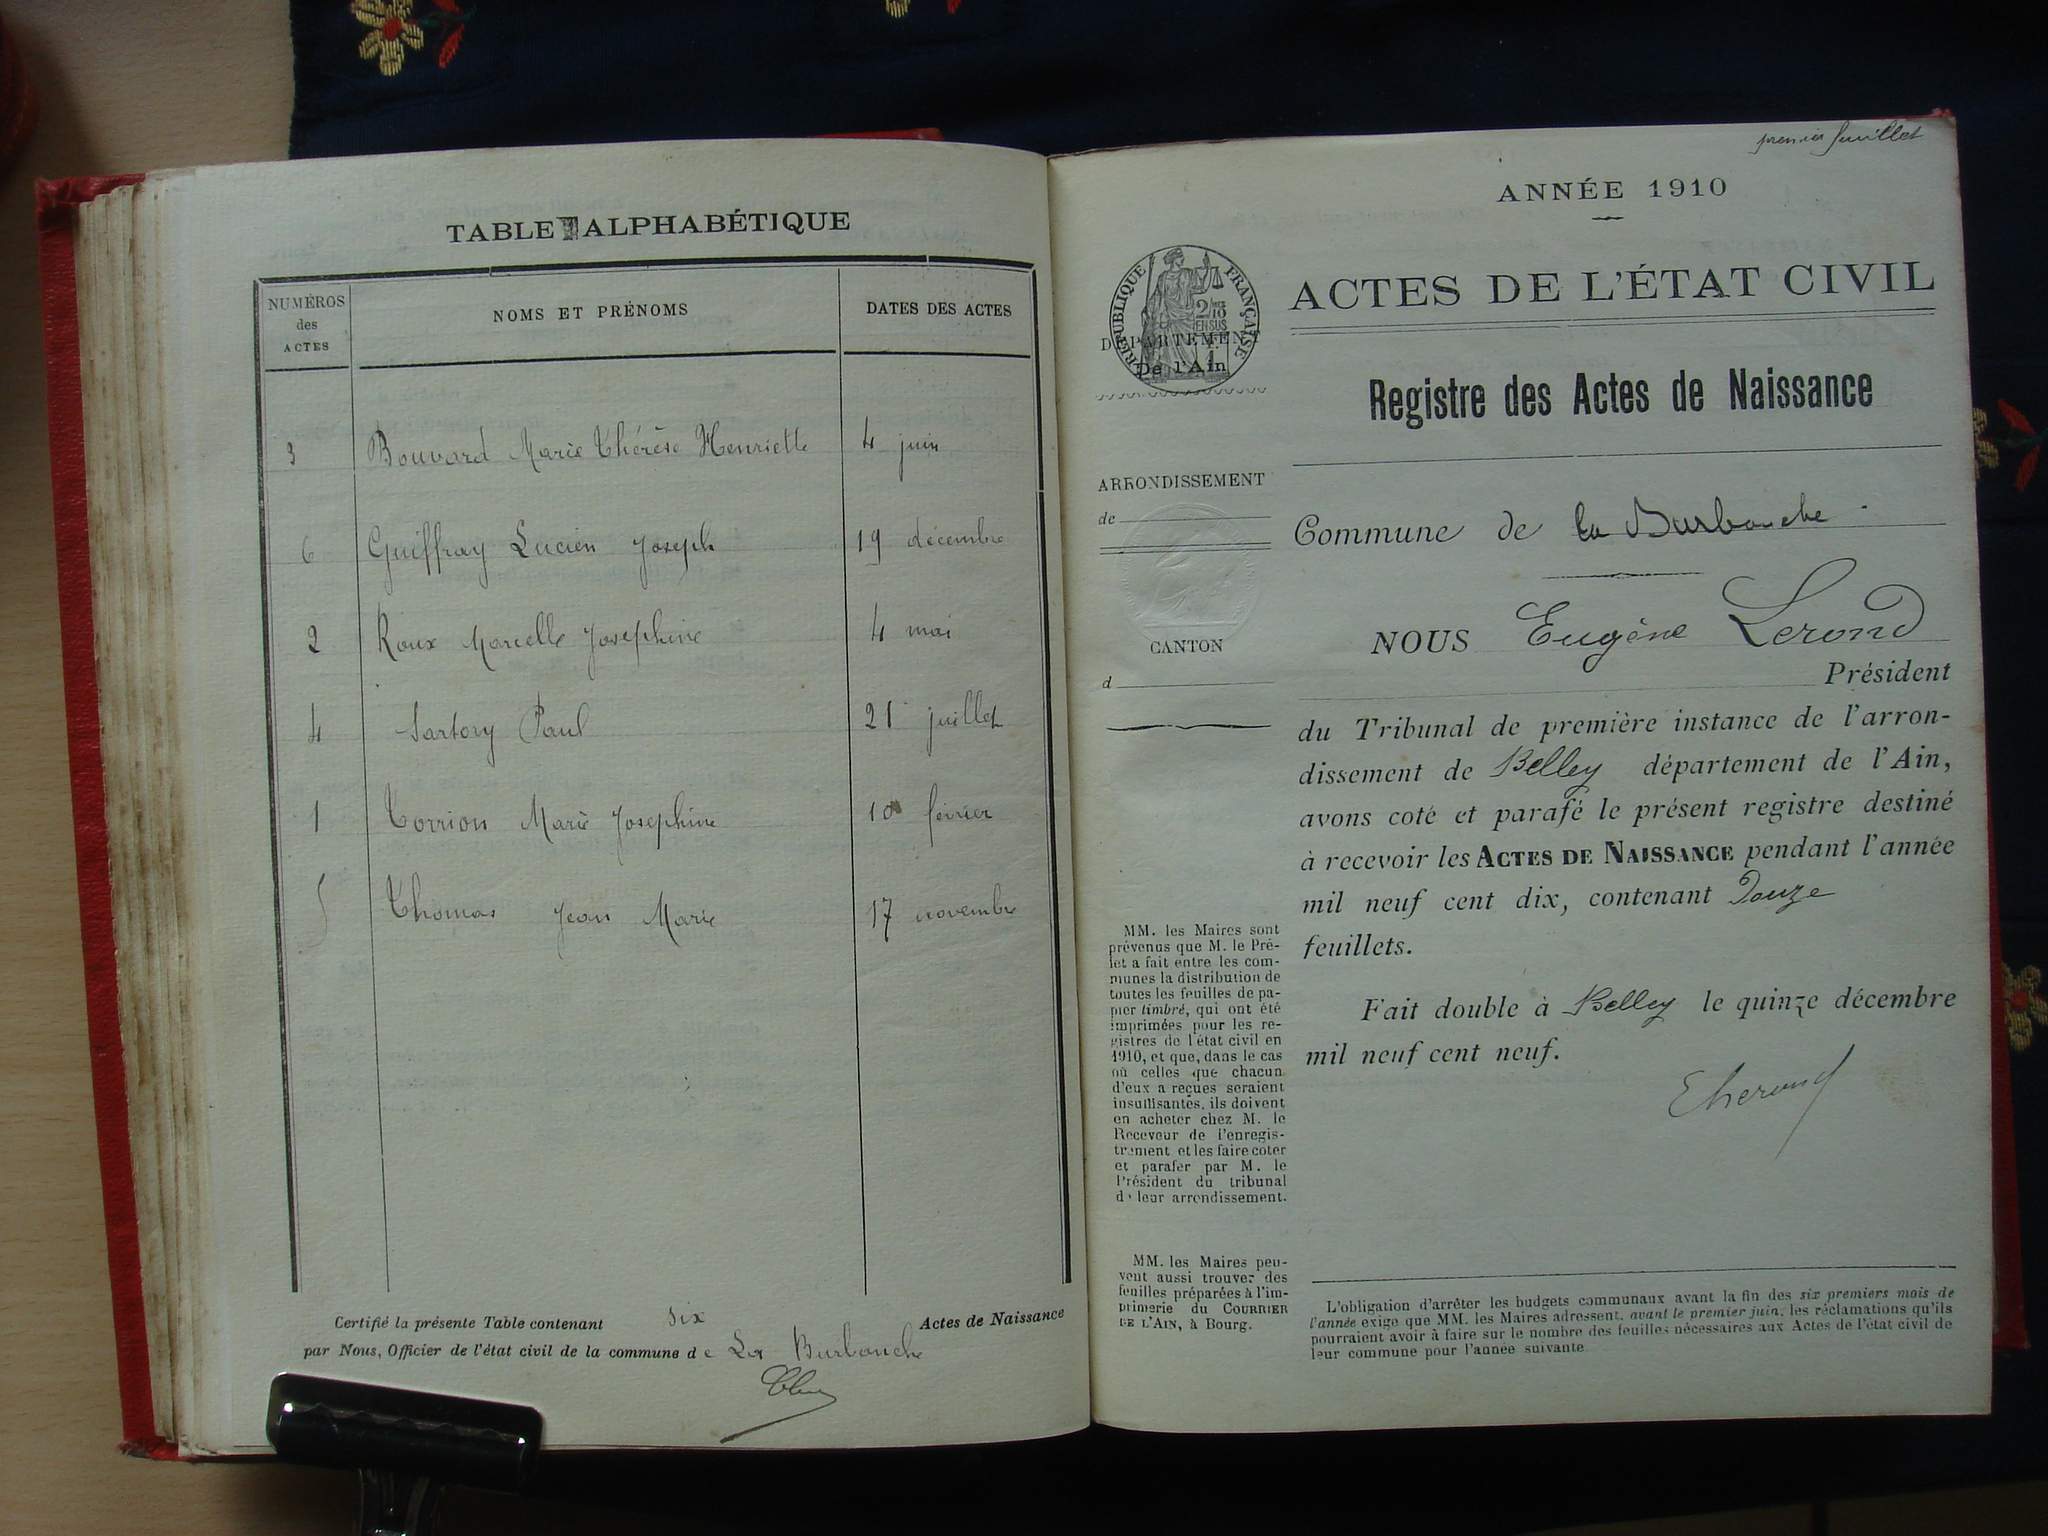 TABLE ALPHABÉTIQUE
NUMÉROS
des
ACTES
NOMS ET PRÉNOMS
DATES DES ACTES
3 Bouvard Marie Thérèse Henriette 4 juin
6 Guiffray Lucien Joseph 19 décembre
2 Roux Marcelle Josephine 4 mai
4 Sartory Paul 21 juillet
1 Torrion Marie Josephine 10 février
5 Thomas Jean Marie 17 novembre
Certifié la présente Table contenant six Actes de Naissance
par Nous, Officier de l'état civil de la commune de La Burbanche
premier feuillet
ANNÉE 1910
ACTES DE L'ÉTAT CIVIL
RÉPUBLIQUE FRANÇAISE
DÉPARTEMENT
De l'Ain
Registre des Actes de Naissance
ARRONDISSEMENT
de
CANTON
d
Commune de la Burbanche.
NOUS Eugène Lerond
Président
du Tribunal de première instance de l'arron-
dissement de Belley département de l'Ain,
avons coté et parafé le présent registre destiné
à recevoir les ACTES DE NAISSANCE pendant l'année
mil neuf cent dix, contenant Douze
feuillets.
Fait double à Belley le quinze décembre
mil neuf cent neuf.
MM. les Maires sont
prévenus que M. le Pré-
fet a fait entre les com-
munes la distribution de
toutes les feuilles de pa-
pier timbré, qui ont été
imprimées pour les re-
gistres de l'état civil en
1910, et que, dans le cas
où celles que chacun
d'eux a reçues seraient
insuffisantes, ils doivent
en acheter chez M. le
Receveur de l'enregis-
trement et les faire coter
et parafer par M. le
Président du tribunal
de leur arrondissement.
MM. les Maires peu-
vent aussi trouver des
feuilles préparées à l'im-
primerie du COURRIER
DE L'AIN, à Bourg.
L'obligation d'arrêter les budgets communaux avant la fin des six premiers mois de
l'année exige que MM. les Maires adressent, avant le premier juin, les réclamations qu'ils
pourraient avoir à faire sur le nombre des feuilles nécessaires aux Actes de l'état civil de
leur commune pour l'année suivante